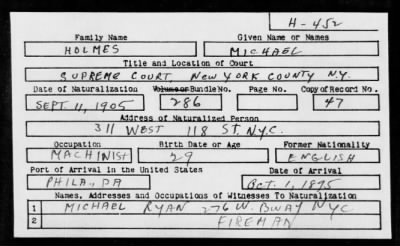 H-452
Family Name Given Name or Names
HOLMES MICHAEL
Title and Location of Court
SUPREME COURT, NEW YORK COUNTY N.Y.
Date of Naturalization Volume or Bundle No. Page No. Copy of Record No.
SEPT. 11, 1905 286 47
Address of Naturalized Person
311 WEST 118 ST. N.Y.C.
Occupation Birth Date or Age Former Nationality
MACHINIST 29 ENGLISH
Port of Arrival in the United States Date of Arrival
PHILA., PA OCT. 1, 1895
Names, Addresses and Occupations of Witnesses To Naturalization
1 MICHAEL RYAN 276 W. BWAY NYC
2 FIREMAN